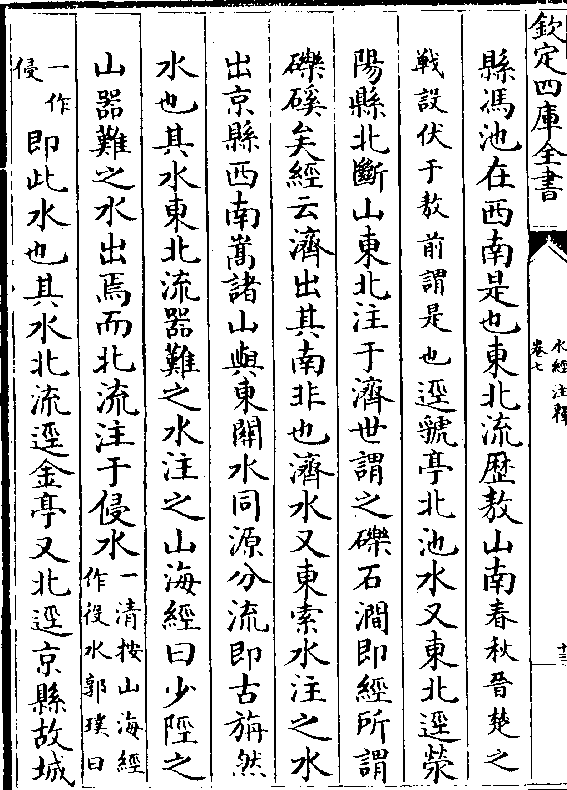 欽定四庫全書
水經注釋
卷七
十三
縣馮池在西南是也東北流歷敖山南春秋晉楚之
戰設伏于敖前謂是也逕虢亭北池水又東北逕滎
陽縣北斷山東北注于濟世謂之礫石澗即經所謂
礫磎矣經云濟出其南非也濟水又東索水注之水
出京縣西南嵩諸山與東關水同源分流即古旃然
水也其水東北流器難之水注之山海經曰少陘之
山器難之水出焉而北流注于侵水一清按山海經作役水郭璞曰
一作侵即此水也其水北流逕金亭又北逕京縣故城